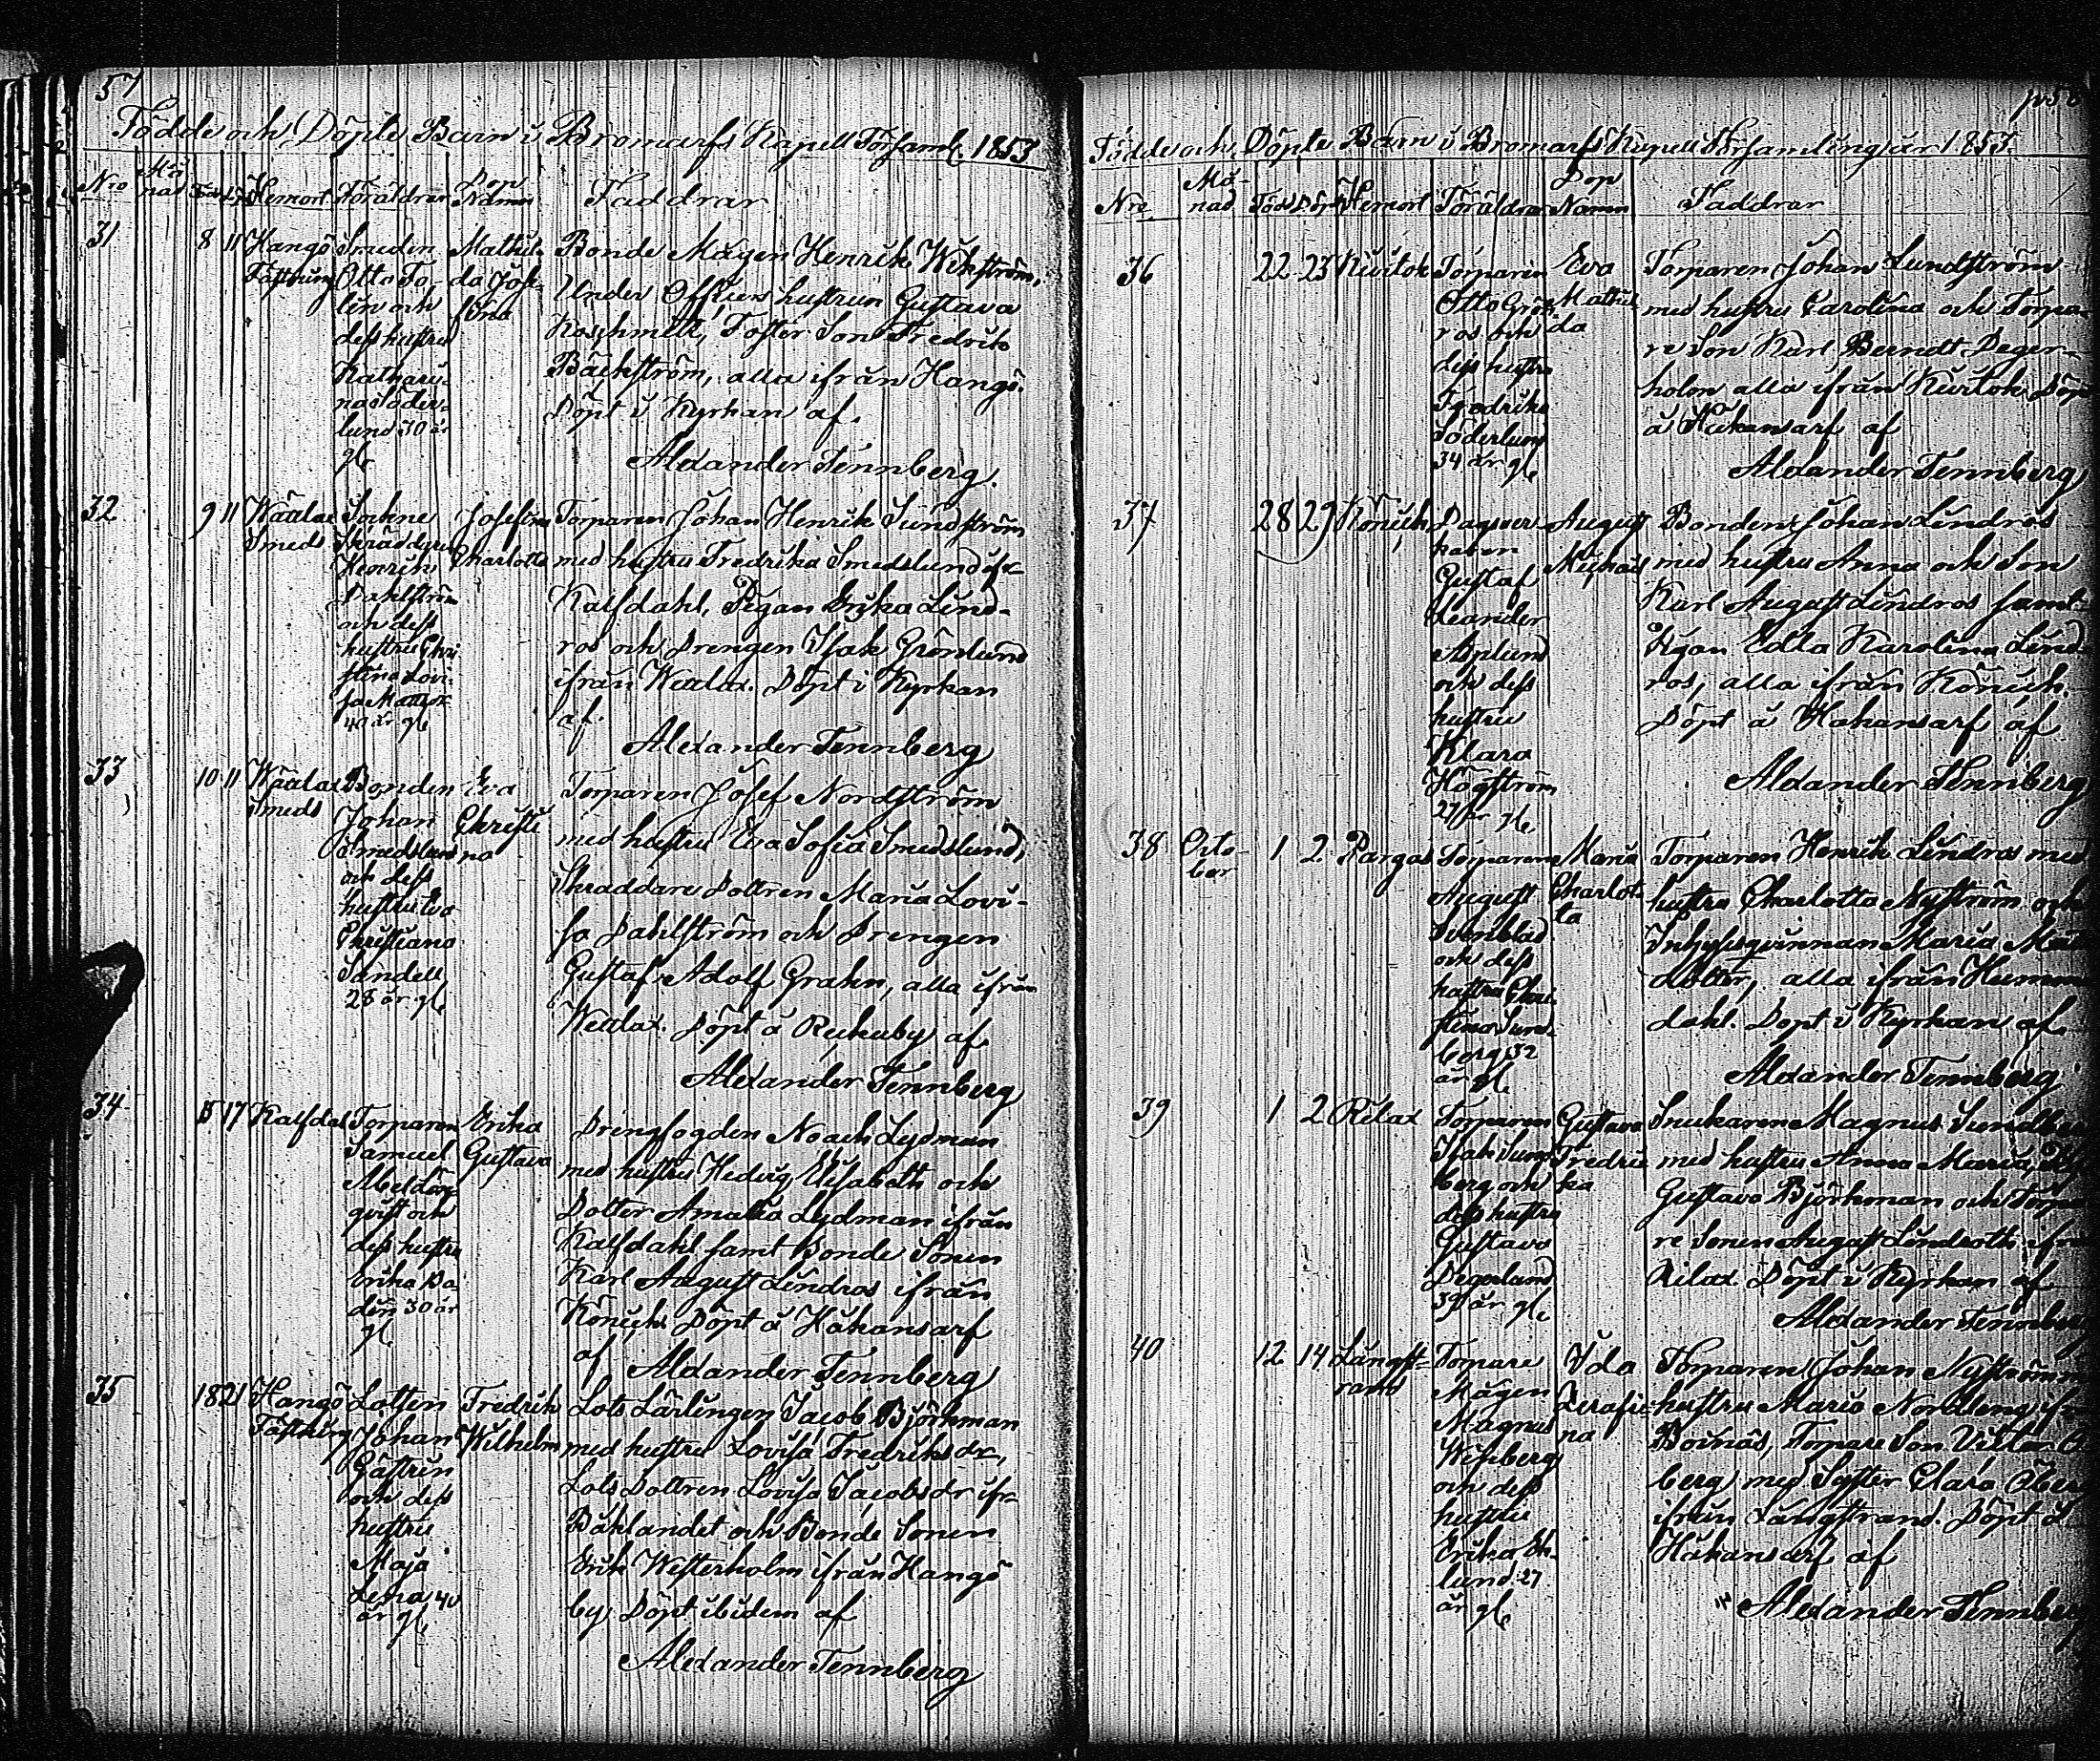 57
Födde och Döpte Barn i Bromarfs Kapell Församl. 1853
Nro Månad Född Döpt Hemort Föräldrar Dop Namn Faddrar
31 8 11 Hangö Fästning
Smeden
Otto
och
dess hustru
Katharina
Söderlund 30 år
gl.
Mathilda Josefina
Bonde Mågen Henrik Wikström,
Under Officers hustrun Gustava
Foster Son Fredrik
Bäckström, alla ifrån Hangö.
Döpt i Kyrkan af.
Alexander Tennberg.
32 9 11 Wättlax Smeds
Sockne
Skräddaren
Henrik
Dahlström
och dess
hustru Christina Lovisa
40 år gl.
Josefina
Charlotta
Torparen Johan Henrik Sundström
med hustru Fredrika Smedslund ifr.
Kalfdahl, Pigan Erika Lindros
och Drengen Isak Grönlund
ifrån Wettlax. Döpt i Kyrkan
af.
Alexander Tennberg
33 10 11 Wättlax Smeds
Bonden
Johan
Smedslund
och dess
hustru Eva
Christiana
Sandell
28 år gl.
Eva
Christina
Torparen Josef Nordström
med hustru Eva Sofia Smedslund,
Skraddare Dottren Maria Lovisa
Dahlström och Drengen
Gustaf Adolf Grahn, alla ifrån
Wettlax. Döpt å Rekuby af
Alexander Tennberg
34 15 17 Kalfdal
Torparen
Samuel
Abel
och
dess hustru
Erika
30 år
gl.
Erika
Gustava
Drengfogden Noach Lydman
med hustru Hedvig Elisabeth och
Dotter Amalia Lydman ifrån
Kalfdahl samt Bonde Sonen
Karl August Lindros ifrån
Könick. Döpt å Håkansarf
af
Alexander Tennberg
35 18 21 Hangö Fästning
Lotsen
Johan
Gästrin
och dess
hustru
Maja
Lena 40
år gl.
Fredrik
Wilhelm
Lots Lärlingen Jacob Björkman
med hustru Lovisa Fredriksdr,
Lots Dottren Lovisa Jacobsdr ifr.
Båklandet och Bonde Sonen
Erik Westerholm ifrån Hangö
by. Döpt ibidem af
Alexander Tennberg
Födde och Döpte Barn i Bromarfs Kapell Församling år 1853.
Nro Månad Född Döpt Hemort Föräldrar Dop Namn Faddrar
36 22 23 Kivitok
Torparen
Otto Grönros
och
dess hustru
Fredrika
Söderlund
34 år gl.
Eva
Mathilda
Torparen Johan Lundström
med hustru Carolina och Torpare
Son Karl Berndt Degerholm
alla ifrån Kivitok. Döpt
å Håkansarf af
Alexander Tennberg
37 28 29 Könick
Dagsverkaren
Gustaf
Leander
Asplund
och dess
hustru
Klara
Högström
27 år gl.
August
Michael
Bonden Johan Lindros
med hustru Anna och Son
Karl August Lindros samt
Pigan Edla Karolina Lindros,
alla ifrån Könick.
Döpt å Håkansarf af
Alexander Tennberg
38 October 1 2 Pargas
Torparen
August
Svenblad
och dess
hustru Christina
Sundberg 32
år gl.
Maria
Charlotta
Torparen Henrik Lindros med
hustru Charlotta Nyström och
Inhysesqvinnan Maria
dotter, alla ifrån
dahl. Döpt i Kyrkan af.
Alexander Tennberg
39 1 2 Rilax
Torparen
Isak Sundberg
och
dess hustru
Gustava
Degerlund
39 år gl.
Gustava
Fredrika
Snickaren Magnus
med hustru Anna Maria,
Gustava Björkman och
Sonen August Linderoth
Rilax. Döpt i Kyrkan af
Alexander Tennberg
40 12 14 Långstrand
Torpare
Mågen
Magnus
Wisberg
och dess
hustru
Erika Eklund
27
år gl.
Ida
Serafina
Torparen Johan Nyström
hustru Maria Nordling
Boxnäs, Torpare Son Viktor
berg med Syster Clara
ifrån Långstrand. Döpt å
Håkansarf af
Alexander Tennberg